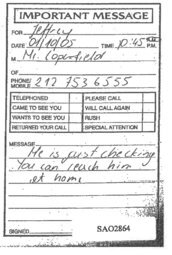 IMPORTANT MESSAGE
FOR Jeffrey
DATE 01/10/05 TIME 10:45 P.M.
M Mr. Copperfield
OF
PHONE/ MOBILE 212 753 6555
TELEPHONED PLEASE CALL
CAME TO SEE YOU WILL CALL AGAIN
WANTS TO SEE YOU RUSH
RETURNED YOUR CALL SPECIAL ATTENTION
MESSAGE He is just checking
You can reach him
at home
SIGNED
SAO2864